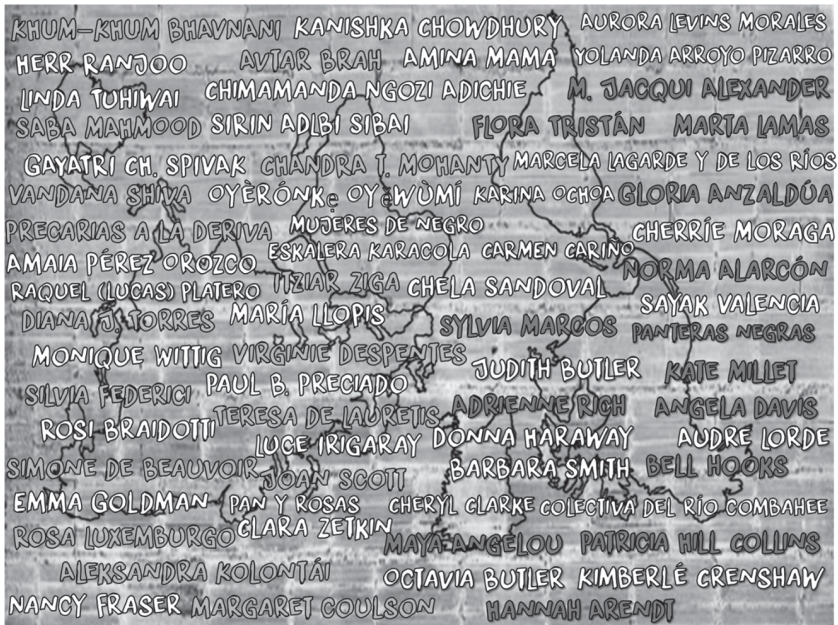 KHUM-KHUM BHAVNANI KANISHKA CHOWDHURY AURORA LEVINS MORALES
HERR RANJOO AVTAR BRAH AMINA MAMA YOLANDA ARROYO PIZARRO
LINDA TUHIWAI CHIMAMANDA NGOZI ADICHIE M. JACQUI ALEXANDER
SABA MAHMOOD SIRIN ADLBI SIBAI FLORA TRISTÁN MARTA LAMAS
GAYATRI CH. SPIVAK CHANDRA T. MOHANTY MARCELA LAGARDE Y DE LOS RÍOS
VANDANA SHIVA OYÈRÓNKẹ OYẹWÙMÍ KARINA OCHOA GLORIA ANZALDÚA
PRECARIAS A LA DERIVA MUJERES DE NEGRO CHERRÍE MORAGA
AMAIA PÉREZ OROZCO ESKALERA KARACOLA CARMEN CARIÑO NORMA ALARCÓN
RAQUEL (LUCAS) PLATERO ITZIAR ZIGA CHELA SANDOVAL SAYAK VALENCIA
DIANA J. TORRES MARÍA LLOPIS SYLVIA MARCOS PANTERAS NEGRAS
MONIQUE WITTIG VIRGINIE DESPENTES JUDITH BUTLER KATE MILLET
SILVIA FEDERICI PAUL B. PRECIADO ADRIENNE RICH ANGELA DAVIS
ROSI BRAIDOTTI TERESA DE LAURETIS
LUCE IRIGARAY DONNA HARAWAY AUDRE LORDE
SIMONE DE BEAUVOIR JOAN SCOTT BARBARA SMITH BELL HOOKS
EMMA GOLDMAN PAN Y ROSAS CHERYL CLARKE COLECTIVA DEL RÍO COMBAHEE
ROSA LUXEMBURGO CLARA ZETKIN MAYA ANGELOU PATRICIA HILL COLLINS
ALEKSANDRA KOLONTÁI OCTAVIA BUTLER KIMBERLÉ CRENSHAW
NANCY FRASER MARGARET COULSON HANNAH ARENDT